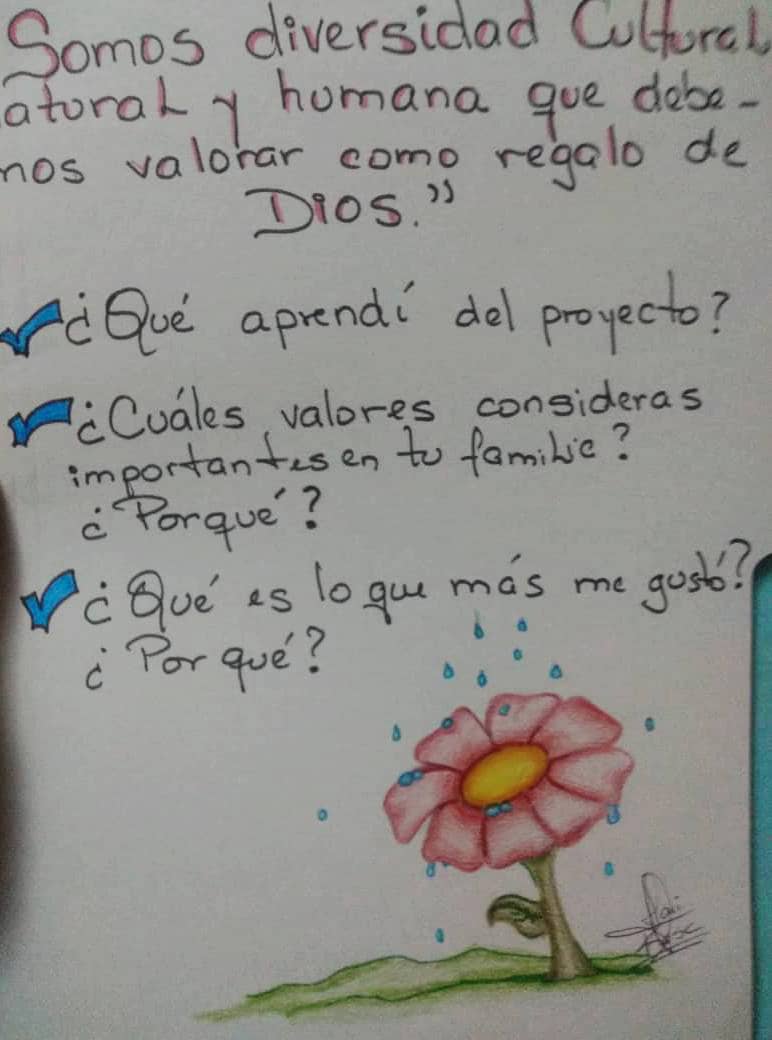 Somos diversidad Cultural
atural y humana que debe-
mos valorar como regalo de
Dios."
¿Qué aprendí del proyecto?
¿Cuáles valores consideras
importantes en tu familia?
¿Porqué?
¿Qué es lo que más me gustó?
¿Por qué?